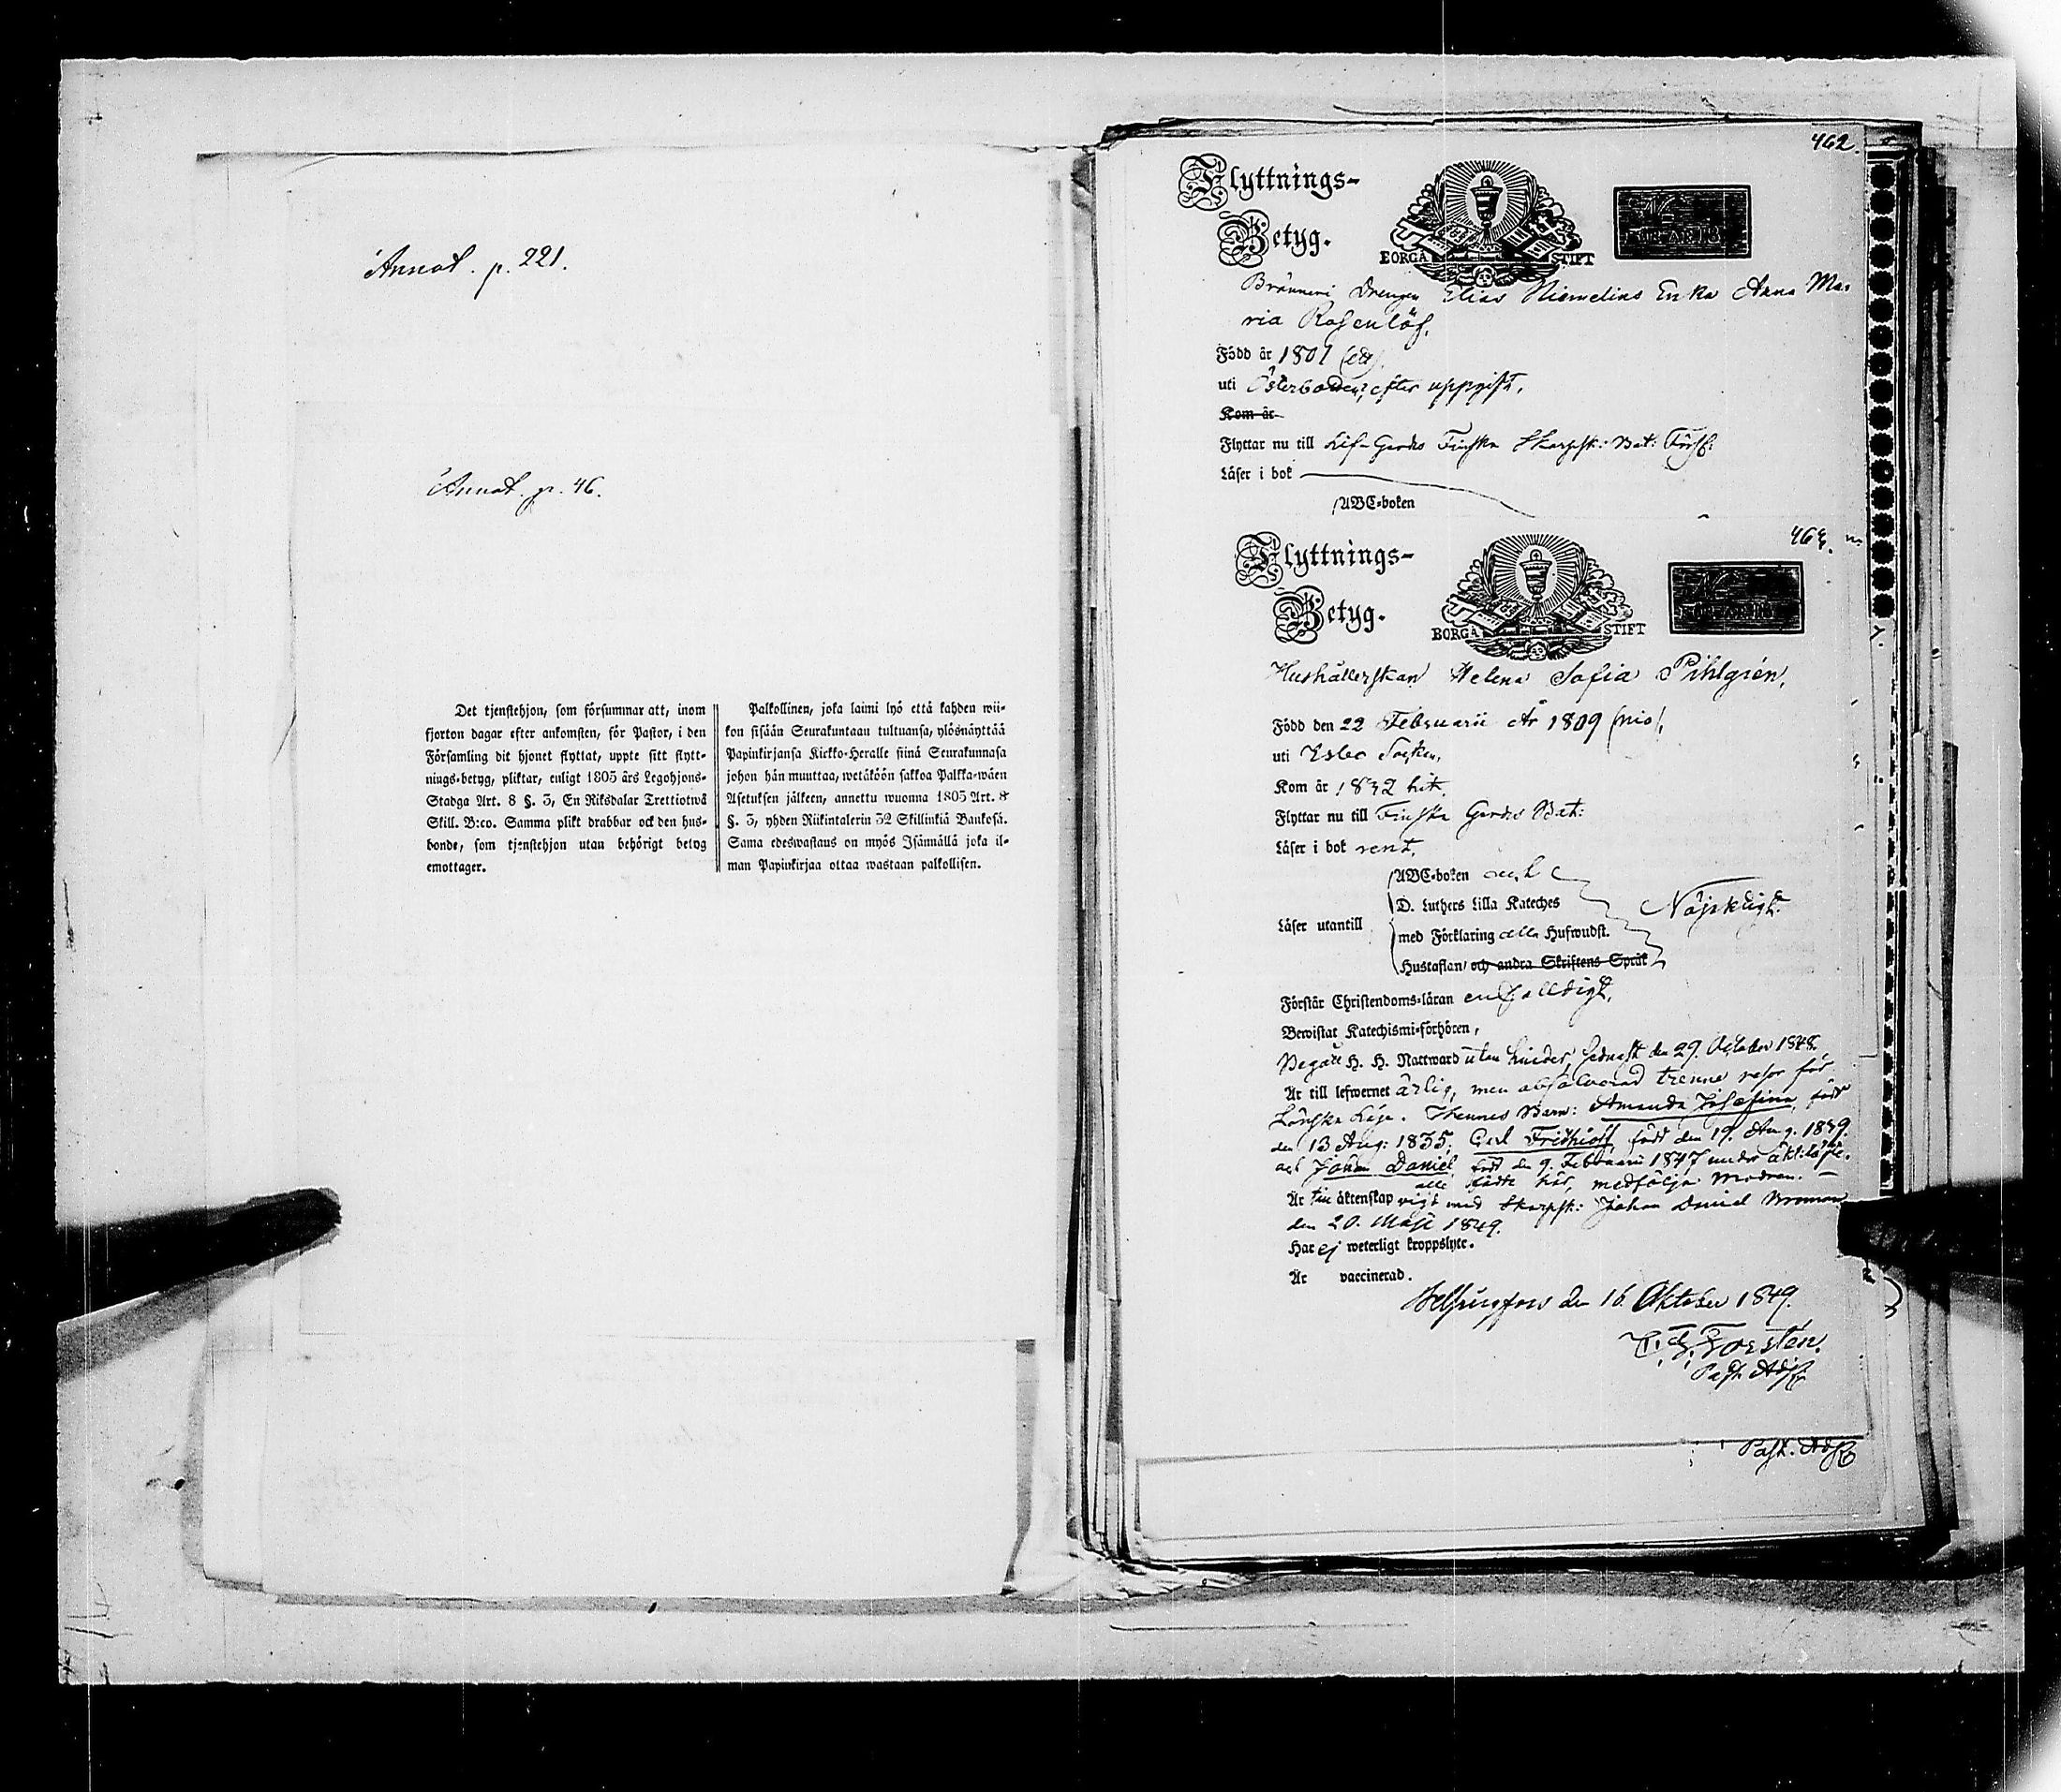 Annot. p. 221.
Annot. p. 46.
Det tjenstehjon, som försummar att, inom
fjorton dagar efter ankomsten, för Pastor, i den
Församling dit hjonet flyttat, uppte sitt flytt-
nings-betyg, pliktar, enligt 1805 års Legohjons-
Stadga Art. 8 §. 3, En Riksdalar Trettiotwå
Skill. B:co. Samma plikt drabbar ock den hus-
bonde, som tjenstehjon utan behörigt betyg
emottager.
Palkollinen, joka laimi lyö että kahden wii-
kon sisään Seurakuntaan tultuansa, ylösnäyttää
Papinkirjansa Kirkko-Herralle siinä Seurakunnasa
johon hän muuttaa, wetäköön sakkoa Palkka-wäen
Asetuksen jälkeen, annettu wuonna 1805 Art. 8
§. 3, yhden Riikintalerin 32 Skillinkiä Bankosa.
Sama edeswastaus on myös Isännällä joka il-
man Papinkirjaa ottaa wastaan palkollisen.
462.
Flyttnings-
Betyg.
BORGÅ STIFT
Bränneri Drengen Elias Niemelins Enka Anna Ma-
ria Rosenlöf.
Född år 1801 (ett)
uti Österbotten, efter uppgift.
Kom år
Flyttar nu till Lif-Gardes Finska Skarpsk: Bat: Förs:
Läser i bok
ABC-boken
463.
Flyttnings-
Betyg.
BORGÅ STIFT
Hushållerskan Helena Sofia Pihlgrén,
Född den 22 Februarii År 1809 (nio),
uti Esbo Socken,
Kom år 1832 hit.
Flyttar nu till Finska Gardes Bat:
Läser i bok rent,
ABC-boken och
D. Luthers Lilla Kateches
Läser utantill
med Förklaring alla Hufwudst.
Hustaflan och andra Skriftens Språk
Nöjaktigt.
Förstår Christendoms-läran enfalldigt,
Bewistat Katechismi-förhören,
Begått H. H. Nattward utan hinder, sednast den 29. October 1848.
Är till lefwernet ärlig, men absolverad trenne resor för
Lönska Läge. Thennes Barn: Amanda Josefina, född
den 13 Aug: 1835, Carl Fridhioff född den 19. Aug. 1839.
och Johan Daniel född den 9. Februarii 1847 under äkt:löfte.
alla födde här, medfölja Modren. —
Är till äktenskap vigd med Skarpsk: Johan Daniel Broman
den 20. Maji 1849.
Har ej weterligt kroppslyte.
Är vaccinerad.
Helsingfors den 16. Oktober 1849.
Forstén.
Past. Adj.
Past. Adj.